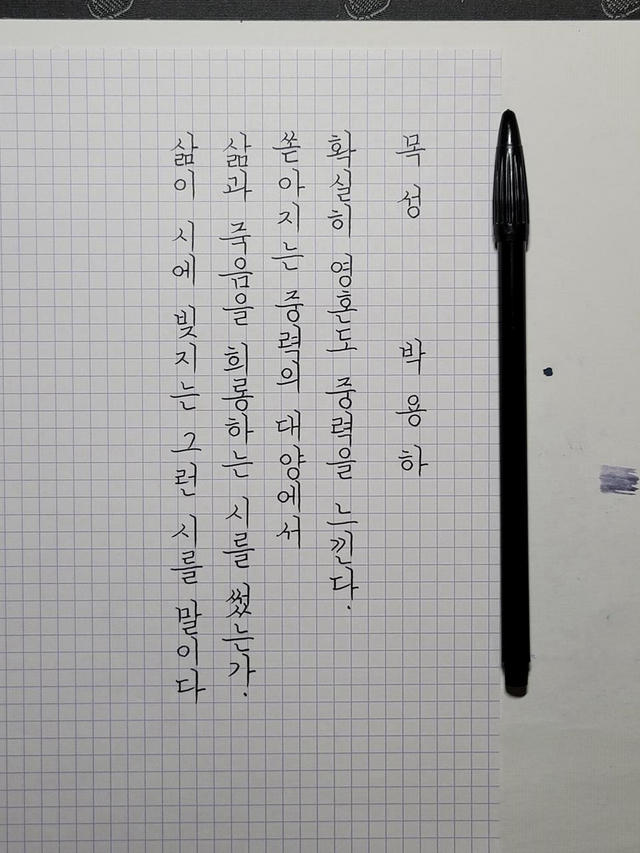 목성 박용하
확실히 영혼도 중력을 느낀다.
쏟아지는 중력의 대양에서
삶과 죽음을 희롱하는 시를 썼는가.
삶이 시에 빚지는 그런 시를 말이다